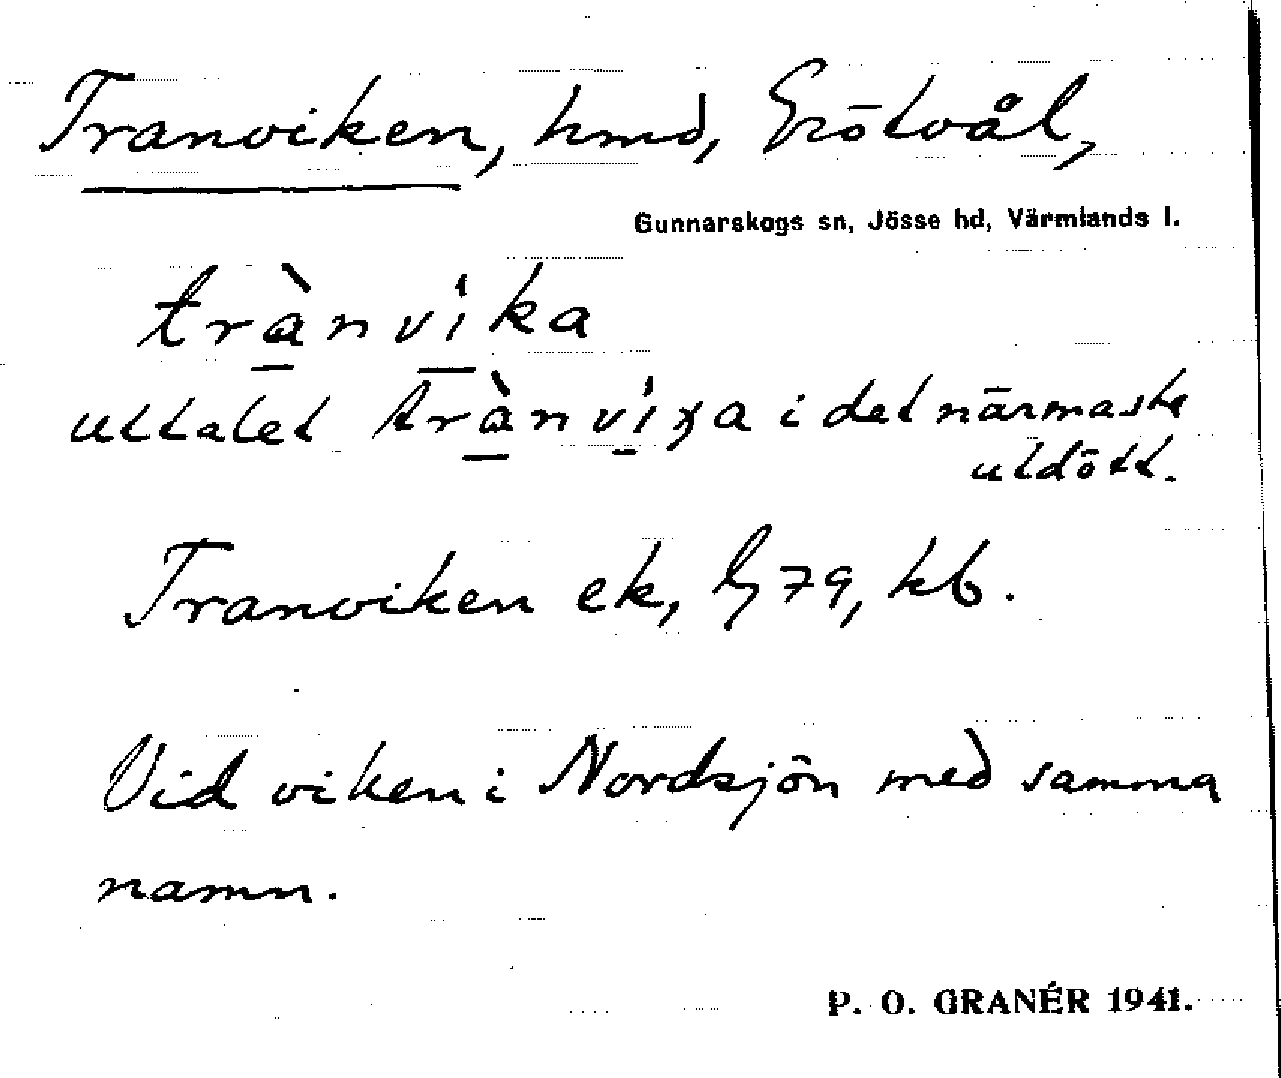 Tranviken, hmd, Grötvål,
Gunnarskogs sn, Jösse hd, Värmlands l.
trànvika
uttalet trànviχa i det närmaste
utdött.
Tranviken ek, G 79, kb.
Vid viken i Nordsjön med samma
namn.
P. O. GRANÉR 1941.